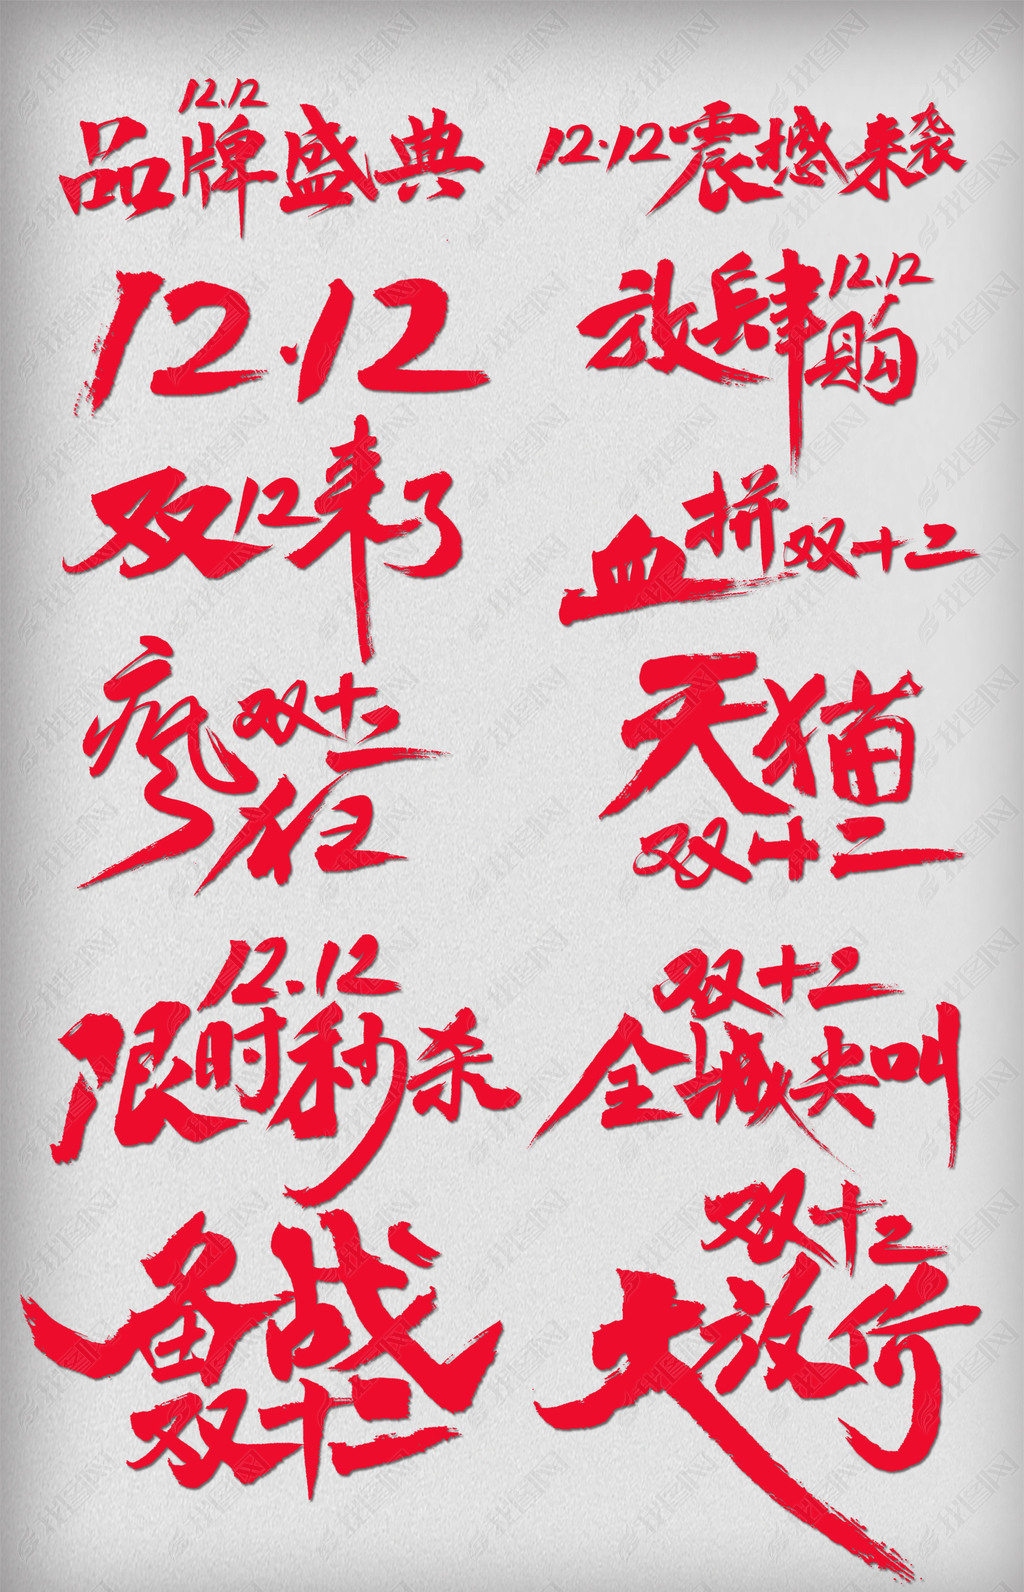 12.12
品牌盛典
12.12震撼来袭
12.12
放肆购
12.12
双12来了
血拼双十二
疯狂
双十二
天猫
双十二
12.12
限时秒杀
双十二
全城尖叫
备战
双十二
双十二
大放价